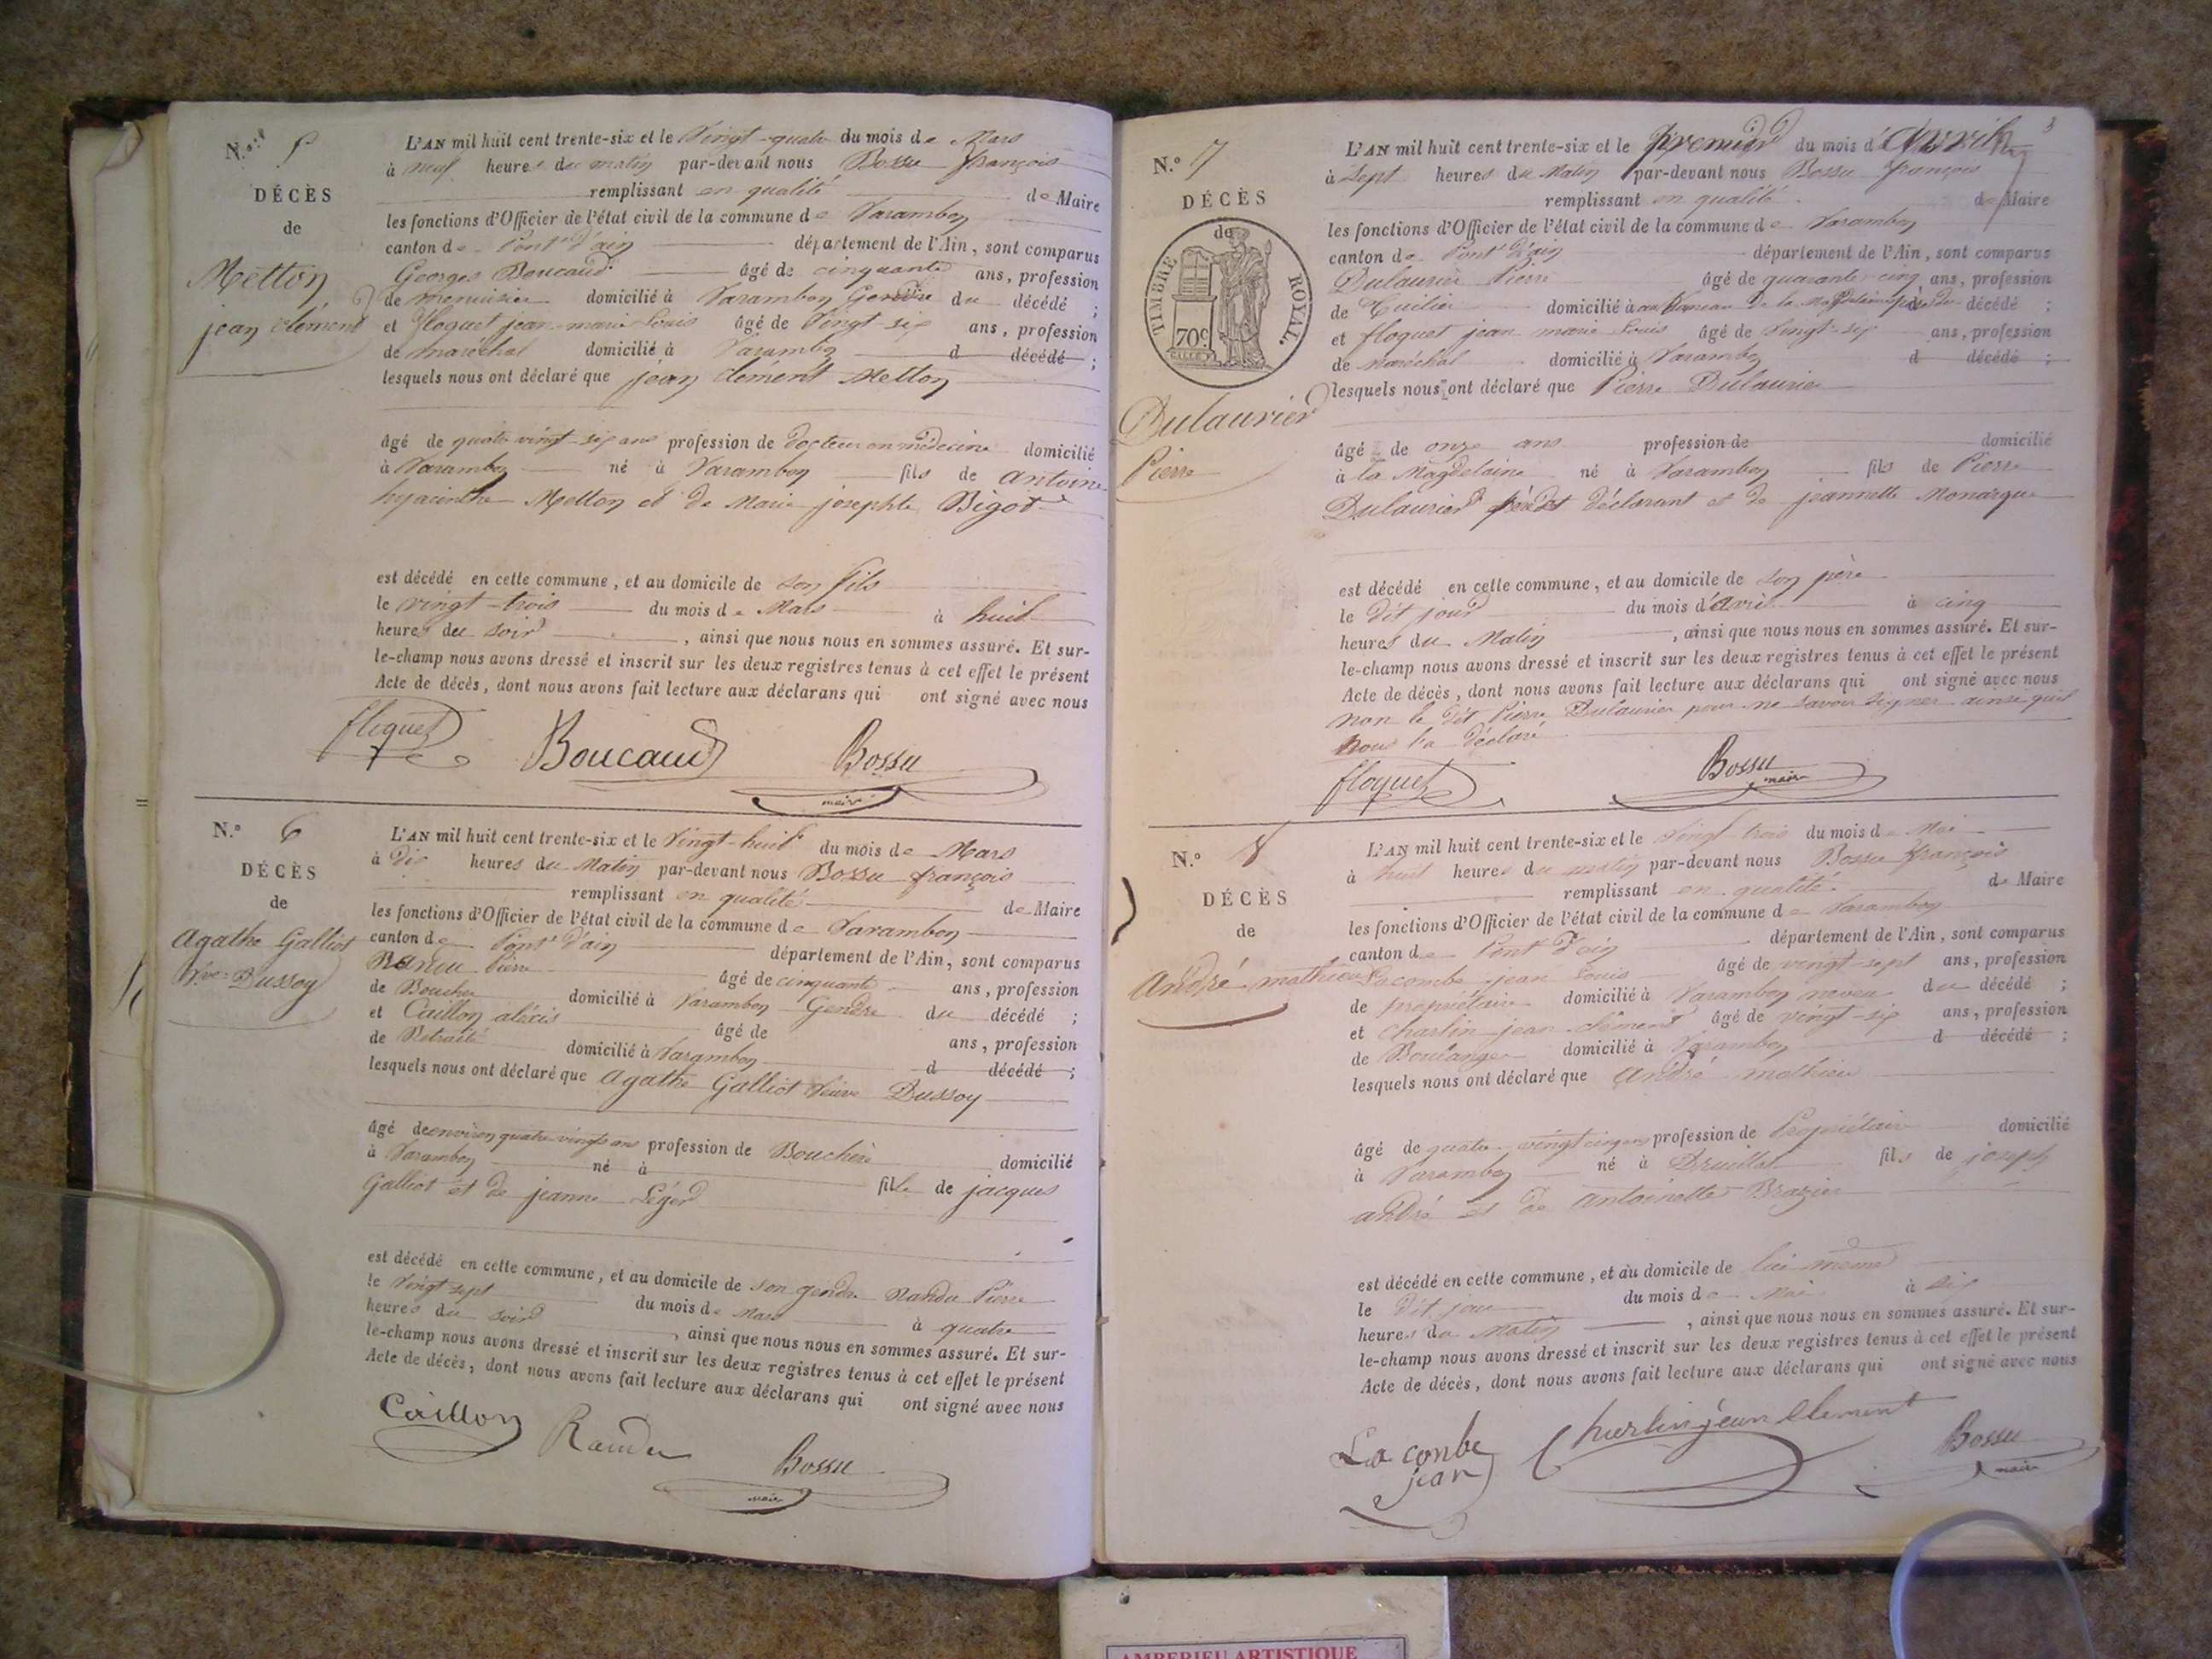 N.º 5
DÉCÈS
de
Metton
jean clément
L'AN mil huit cent trente-six et le Vingt-quatre du mois de Mars
à neuf heures du matin par-devant nous Bossu françois
remplissant en qualité de Maire
les fonctions d'Officier de l'état civil de la commune de Varambon
canton de Pont d'ain département de l'Ain, sont comparus
Georges Boucaud âgé de cinquante ans, profession
de menuisier domicilié à Varambon Gendre du décédé ;
et floquet jean-marie Louis âgé de Vingt-six ans, profession
de maréchal domicilié à Varambon d décédé ;
lesquels nous ont déclaré que jean clement Metton
âgé de quatre vingt-six ans profession de docteur en médecine domicilié
à Varambon né à Varambon fils de antoine
hyacinthe Metton et de Marie josephte Bigot
est décédé en cette commune, et au domicile de son fils
le vingt-trois du mois de Mars à huit
heures du soir, ainsi que nous nous en sommes assuré. Et sur-
le-champ nous avons dressé et inscrit sur les deux registres tenus à cet effet le présent
Acte de décès, dont nous avons fait lecture aux déclarans qui ont signé avec nous
floquet Boucaud Bossu
maire
N.º 6
DÉCÈS
de
Agathe Galliot
Vve Dussoy
L'AN mil huit cent trente-six et le Vingt-huit du mois de Mars
à Dix heures du Matin par-devant nous Bossu françois
remplissant en qualité de Maire
les fonctions d'Officier de l'état civil de la commune de Varambon
canton de Pont d'ain département de l'Ain, sont comparus
Pierre âgé de cinquante ans, profession
de Boucher domicilié à Varambon Gendre du décédé ;
et Caillon aléxis âgé de ans, profession
de Retraité domicilié à Varambon d décédé ;
lesquels nous ont déclaré que Agathe Galliot Veuve Dussoy
âgé de environ quatre vingts ans profession de Bouchère domicilié
à Varambon né à fille de jacques
Galliot et de jeanne Léger
est décédé en cette commune, et au domicile de son gendre Randu Pierre
le Vingt sept du mois de Mars à quatre
heures du soir, ainsi que nous nous en sommes assuré. Et sur-
le-champ nous avons dressé et inscrit sur les deux registres tenus à cet effet le présent
Acte de décès, dont nous avons fait lecture aux déclarans qui ont signé avec nous
Caillon Randu Bossu
maire
3
N.º 7
DÉCÈS
de
TIMBRE ROYAL.
70c
Dulaurier
Pierre
L'AN mil huit cent trente-six et le premier du mois d'avril
à Sept heures du Matin par-devant nous Bossu françois
remplissant en qualité de Maire
les fonctions d'Officier de l'état civil de la commune de Varambon
canton de Pont d'ain département de l'Ain, sont comparus
Dulaurier Pierre âgé de quarante-cinq ans, profession
de Tuilier domicilié à au hameau de la Magdelaine père du décédé ;
et floquet jean marie Louis âgé de Vingt-six ans, profession
de maréchal domicilié à Varambon d décédé ;
lesquels nous ont déclaré que Pierre Dulaurier
âgé de onze ans profession de domicilié
à la Magdelaine né à Varambon fils de Pierre
Dulaurier déclarant et de jeannette Monarque
est décédé en cette commune, et au domicile de son père
le dit jour du mois d'avril à cinq
heures du Matin, ainsi que nous nous en sommes assuré. Et sur-
le-champ nous avons dressé et inscrit sur les deux registres tenus à cet effet le présent
Acte de décès, dont nous avons fait lecture aux déclarans qui ont signé avec nous
non le dit Pierre Dulaurier pour ne savoir signer ainsi quil
nous l'a déclaré
floquet Bossu
maire
N.º 8
DÉCÈS
de
André mathieu
L'AN mil huit cent trente-six et le Vingt-trois du mois de Mai
à huit heures du matin par-devant nous Bossu françois
remplissant en qualité de Maire
les fonctions d'Officier de l'état civil de la commune de Varambon
canton de Pont d'ain département de l'Ain, sont comparus
Lacombe jean Louis âgé de vingt-sept ans, profession
de propriétaire domicilié à Varambon neveu du décédé ;
et Charlin jean clément âgé de vingt-six ans, profession
de Boulanger domicilié à Varambon d décédé ;
lesquels nous ont déclaré que André mathieu
âgé de quatre-vingt cinq ans profession de Propriétaire domicilié
à Varambon né à Druillat fils de joseph
andré et de antoinette Brazier
est décédé en cette commune, et au domicile de lui même
le dit jour du mois de Mai à six
heures du Matin, ainsi que nous nous en sommes assuré. Et sur-
le-champ nous avons dressé et inscrit sur les deux registres tenus à cet effet le présent
Acte de décès, dont nous avons fait lecture aux déclarans qui ont signé avec nous
La conbe jean Charlin jean Clement Bossu
maire
AMBERIEU ARTISTIQUE